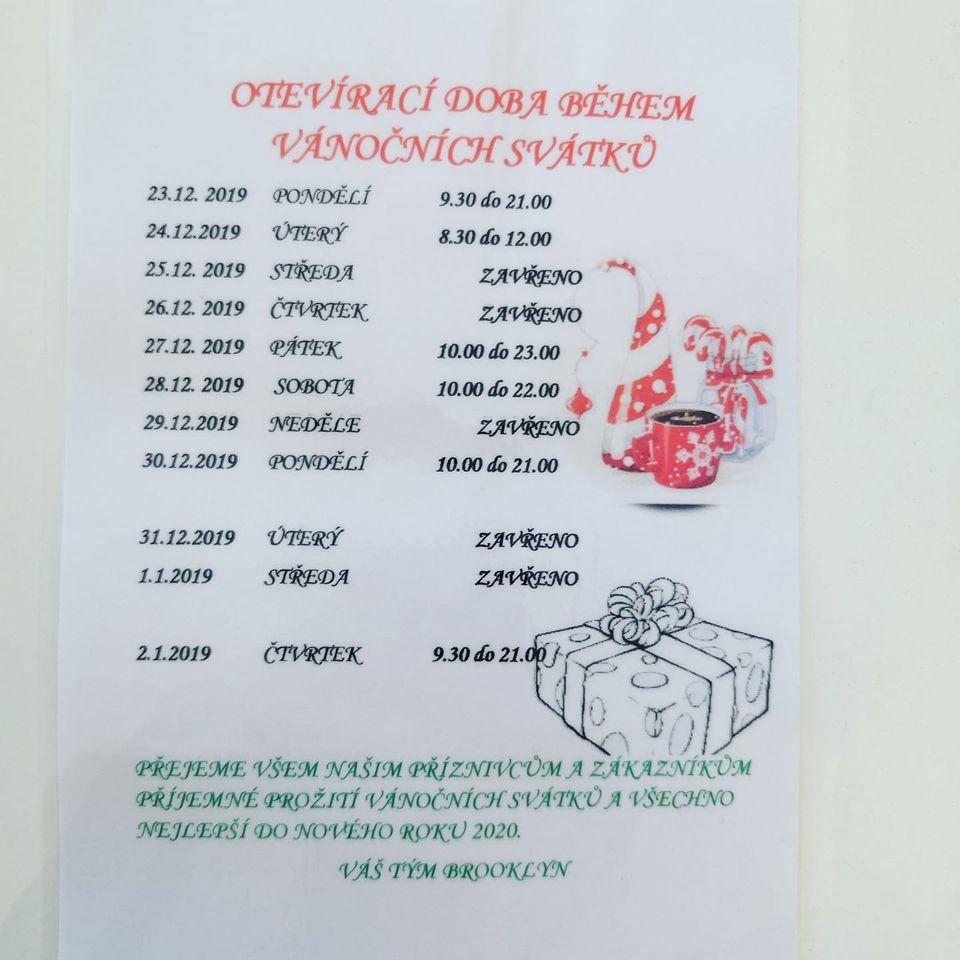 OTEVÍRACÍ DOBA BĚHEM
VÁNOČNÍCH SVÁTKŮ
23.12. 2019 PONDĚLÍ 9.30 do 21.00
24.12.2019 ÚTERÝ 8.30 do 12.00
25.12. 2019 STŘEDA ZAVŘENO
26.12. 2019 ČTVRTEK ZAVŘENO
27.12. 2019 PÁTEK 10.00 do 23.00
28.12. 2019 SOBOTA 10.00 do 22.00
29.12.2019 NEDĚLE ZAVŘENO
30.12.2019 PONDĚLÍ 10.00 do 21.00
31.12.2019 ÚTERÝ ZAVŘENO
1.1.2019 STŘEDA ZAVŘENO
2.1.2019 ČTVRTEK 9.30 do 21.00
PŘEJEME VŠEM NAŠIM PŘÍZNIVCŮM A ZÁKAZNÍKŮM
PŘÍJEMNÉ PROŽITÍ VÁNOČNÍCH SVÁTKŮ A VŠECHNO
NEJLEPŠÍ DO NOVÉHO ROKU 2020.
VÁŠ TÝM BROOKLYN